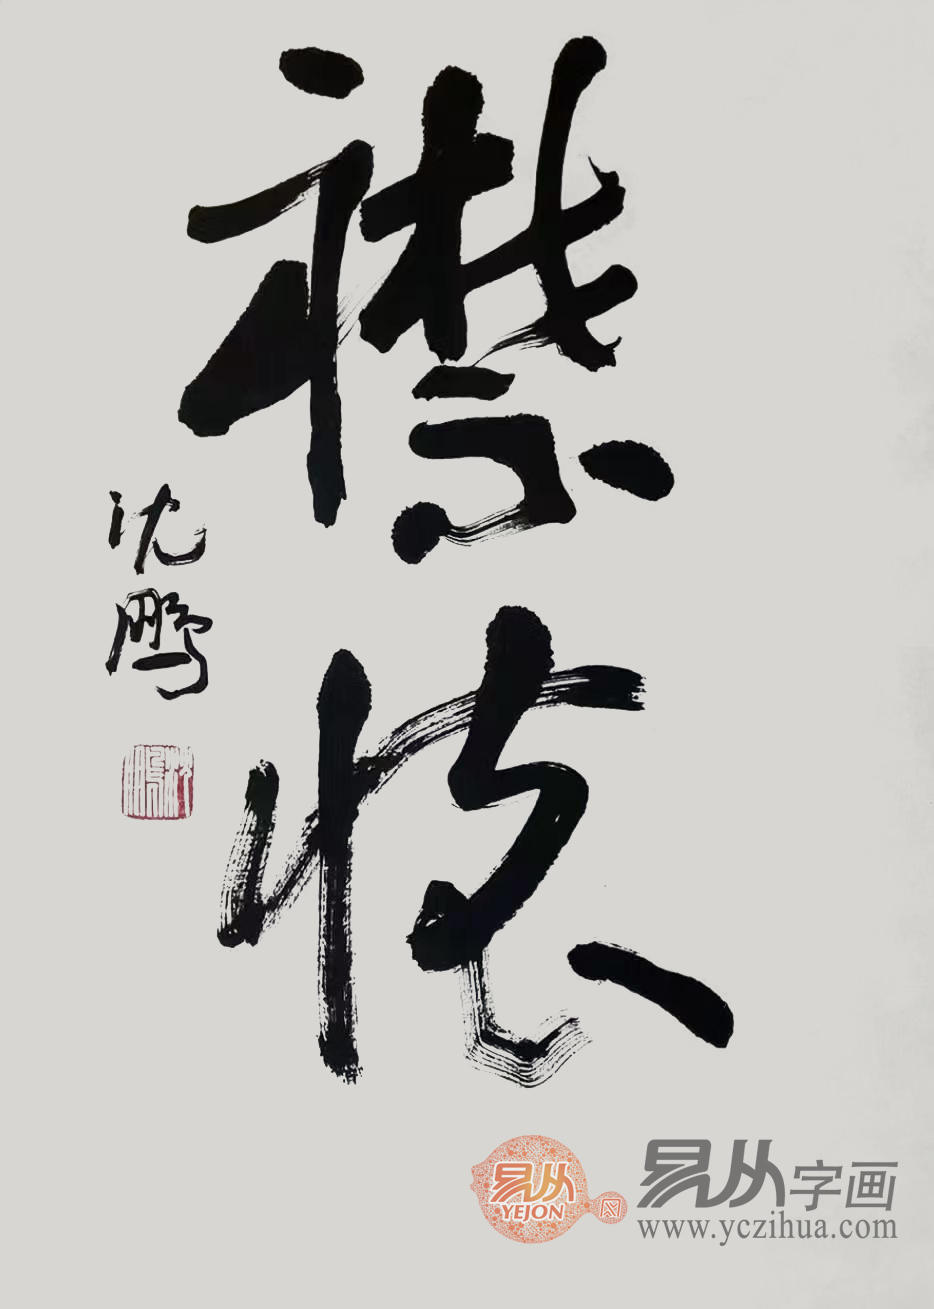 襟怀
沈鹏
易从
YEJON
易从字画
www.yczihua.com